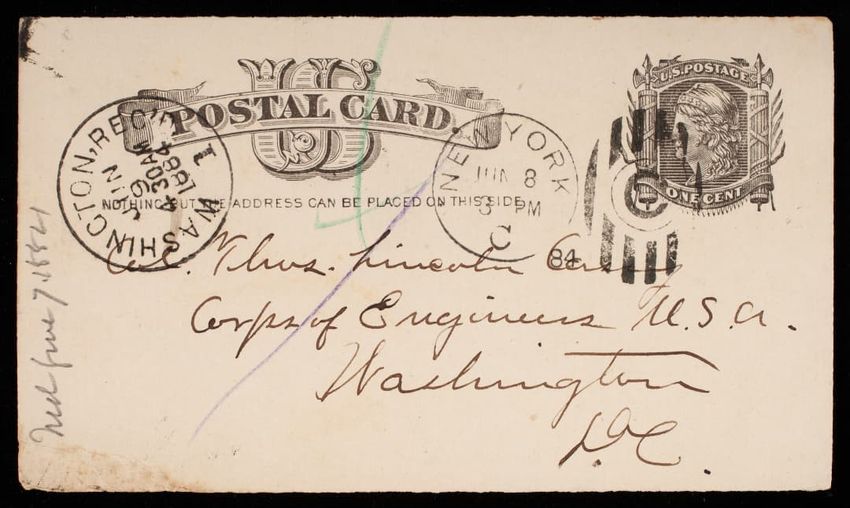 U.S. POSTAGE
ONE CENT
US
POSTAL CARD.
NOTHING BUT THE ADDRESS CAN BE PLACED ON THIS SIDE
WASHINGTON, REC'D
JUN 9
4 30AM
1884
1
NEW YORK
JUN 8
3 PM
C
84
C
Col. Thos. Lincoln Casey
Corps of Engineers U.S.A.
Washington
D.C.
June 7. 1884